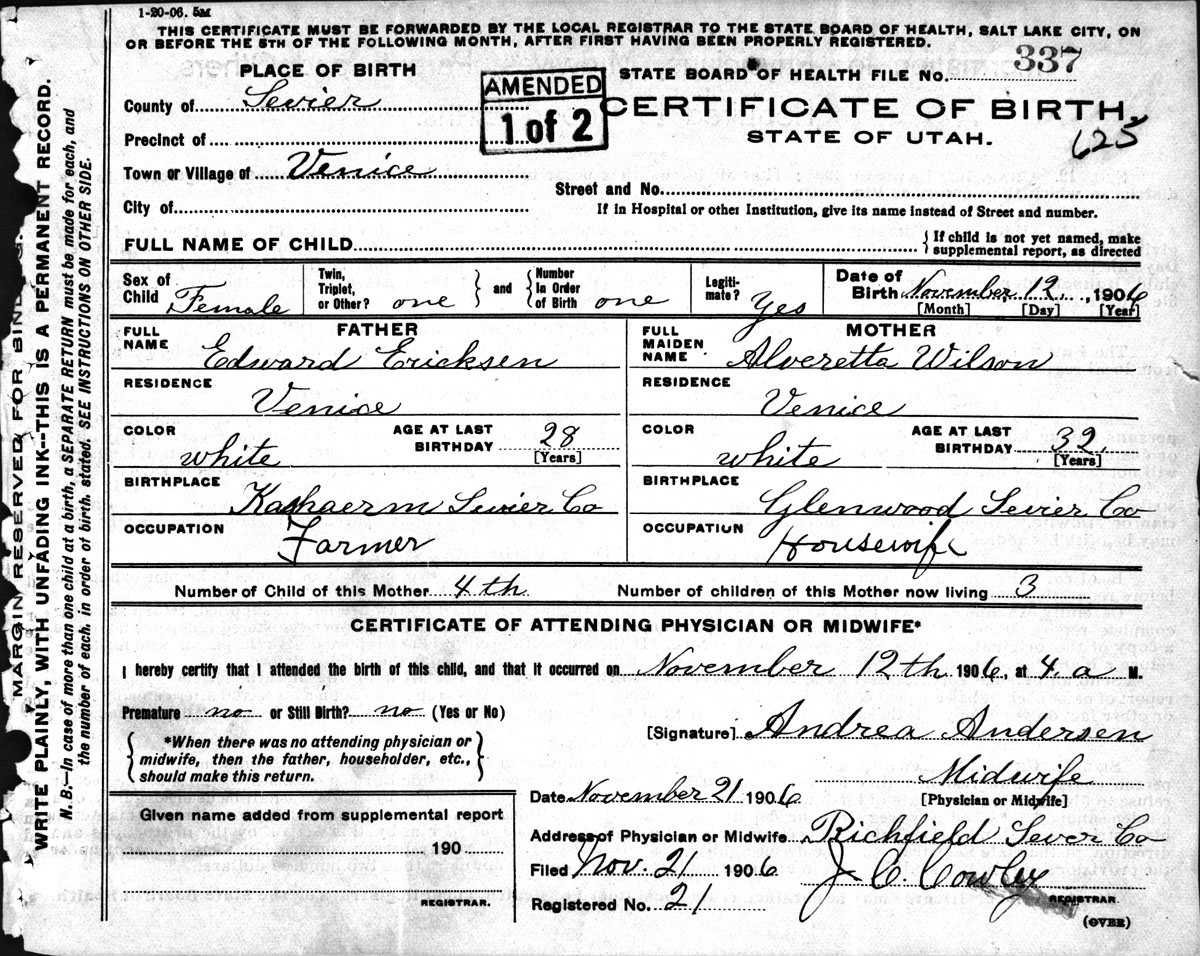 1-20-06. 5M
THIS CERTIFICATE MUST BE FORWARDED BY THE LOCAL REGISTRAR TO THE STATE BOARD OF HEALTH, SALT LAKE CITY, ON
OR BEFORE THE 5TH OF THE FOLLOWING MONTH, AFTER FIRST HAVING BEEN PROPERLY REGISTERED.
PLACE OF BIRTH
STATE BOARD OF HEALTH FILE No. 337
AMENDED
1 of 2
County of Sevier
CERTIFICATE OF BIRTH.
Precinct of
STATE OF UTAH.
625
Town or Village of Venice
Street and No.
City of
If in Hospital or other Institution, give its name instead of Street and number.
FULL NAME OF CHILD
{ If child is not yet named, make
supplemental report, as directed
Sex of Child Female
Twin, Triplet, or Other? one } and { Number in Order of Birth one
Legiti-mate? Yes
Date of Birth November 12, 1906
[Month] [Day] [Year]
FATHER
FULL NAME Edward Ericksen
MOTHER
FULL MAIDEN NAME Alveretta Wilson
RESIDENCE Venice
RESIDENCE Venice
COLOR white
AGE AT LAST BIRTHDAY 28 [Years]
COLOR white
AGE AT LAST BIRTHDAY 32 [Years]
BIRTHPLACE Sevier Co
BIRTHPLACE Glenwood Sevier Co
OCCUPATION Farmer
OCCUPATION Housewife
Number of Child of this Mother 4th
Number of children of this Mother now living 3
CERTIFICATE OF ATTENDING PHYSICIAN OR MIDWIFE*
I hereby certify that I attended the birth of this child, and that it occurred on November 12th 1906, at 4. a M.
Premature no or Still Birth? no (Yes or No)
[Signature] Andrea Andersen
{ *When there was no attending physician or
midwife, then the father, householder, etc.,
should make this return. }
Midwife
[Physician or Midwife]
Date November 21 1906
Given name added from supplemental report
190
REGISTRAR.
Address of Physician or Midwife Richfield Sever Co
Filed Nov. 21 1906
J. C. Cowley
REGISTRAR.
Registered No. 21
(OVER)
MARGIN RESERVED FOR BINDING.
WRITE PLAINLY, WITH UNFADING INK--THIS IS A PERMANENT RECORD.
N. B.—In case of more than one child at a birth, a SEPARATE RETURN must be made for each, and
the number of each, in order of birth, stated. SEE INSTRUCTIONS ON OTHER SIDE.